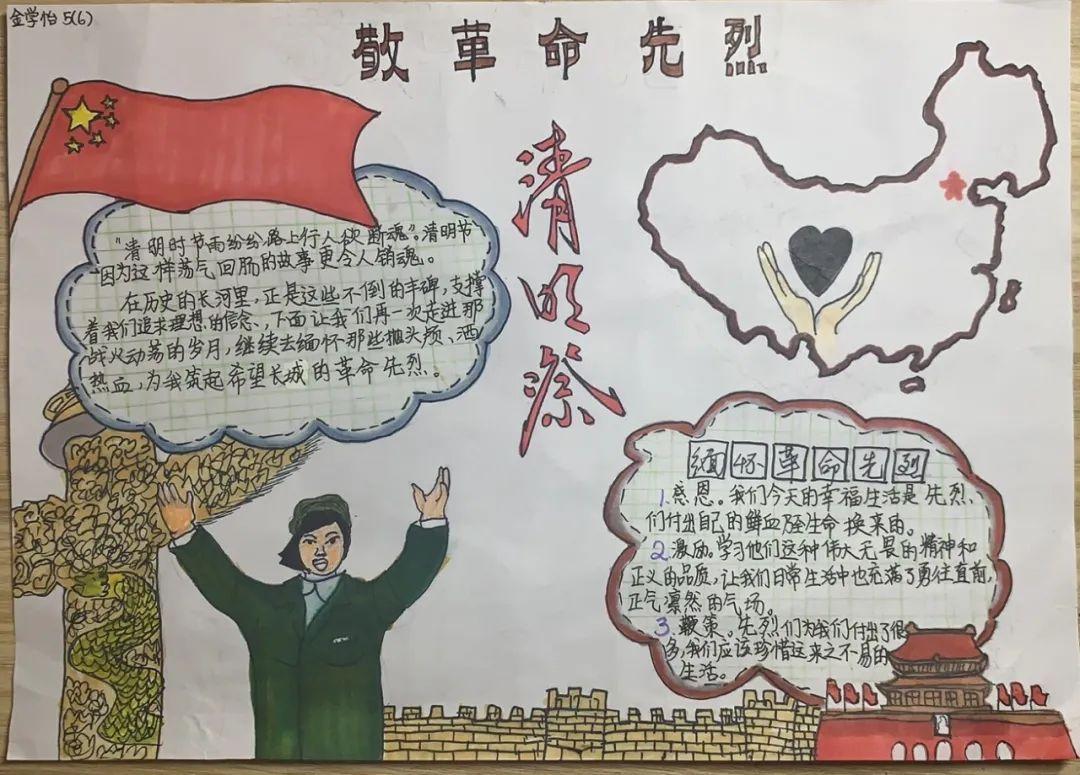 金学怡 5(6)
敬革命先烈
清明祭
"清明时节雨纷纷路上行人欲断魂"。清明节
因为这样荡气回肠的故事更令人销魂。
在历史的长河里,正是这些不倒的丰碑,支撑
着我们追求理想的信念、,下面让我们再一次走进那
战火动荡的岁月,继续去缅怀那些抛头颅、洒
热血,为我筑起希望长城的革命先烈。
缅怀革命先烈
1.感恩。我们今天的幸福生活是先烈
们付出自己的鲜血至生命换来的。
2.激励。学习他们这种伟大无畏的精神和
正义的品质,让我们日常生活中也充满了勇往直前,
正气凛然的气场。
3.鞭策。先烈们为我们付出了很
多,我们应该珍惜这来之不易的
生活。